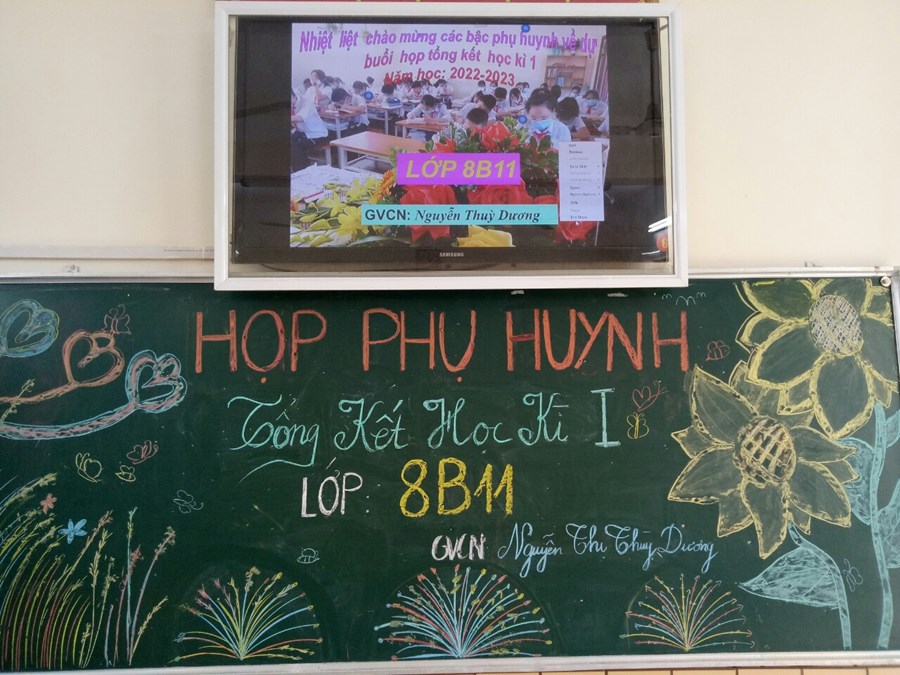 Nhiệt liệt chào mừng các bậc phụ huynh về dự
buổi họp tổng kết học kì 1
Năm học: 2022-2023
LỚP 8B11
GVCN: Nguyễn Thuỳ Dương
SAMSUNG
HỌP PHỤ HUYNH
Tổng Kết Học Kì I
LỚP: 8B11
GVCN Nguyễn Thị Thùy Dương